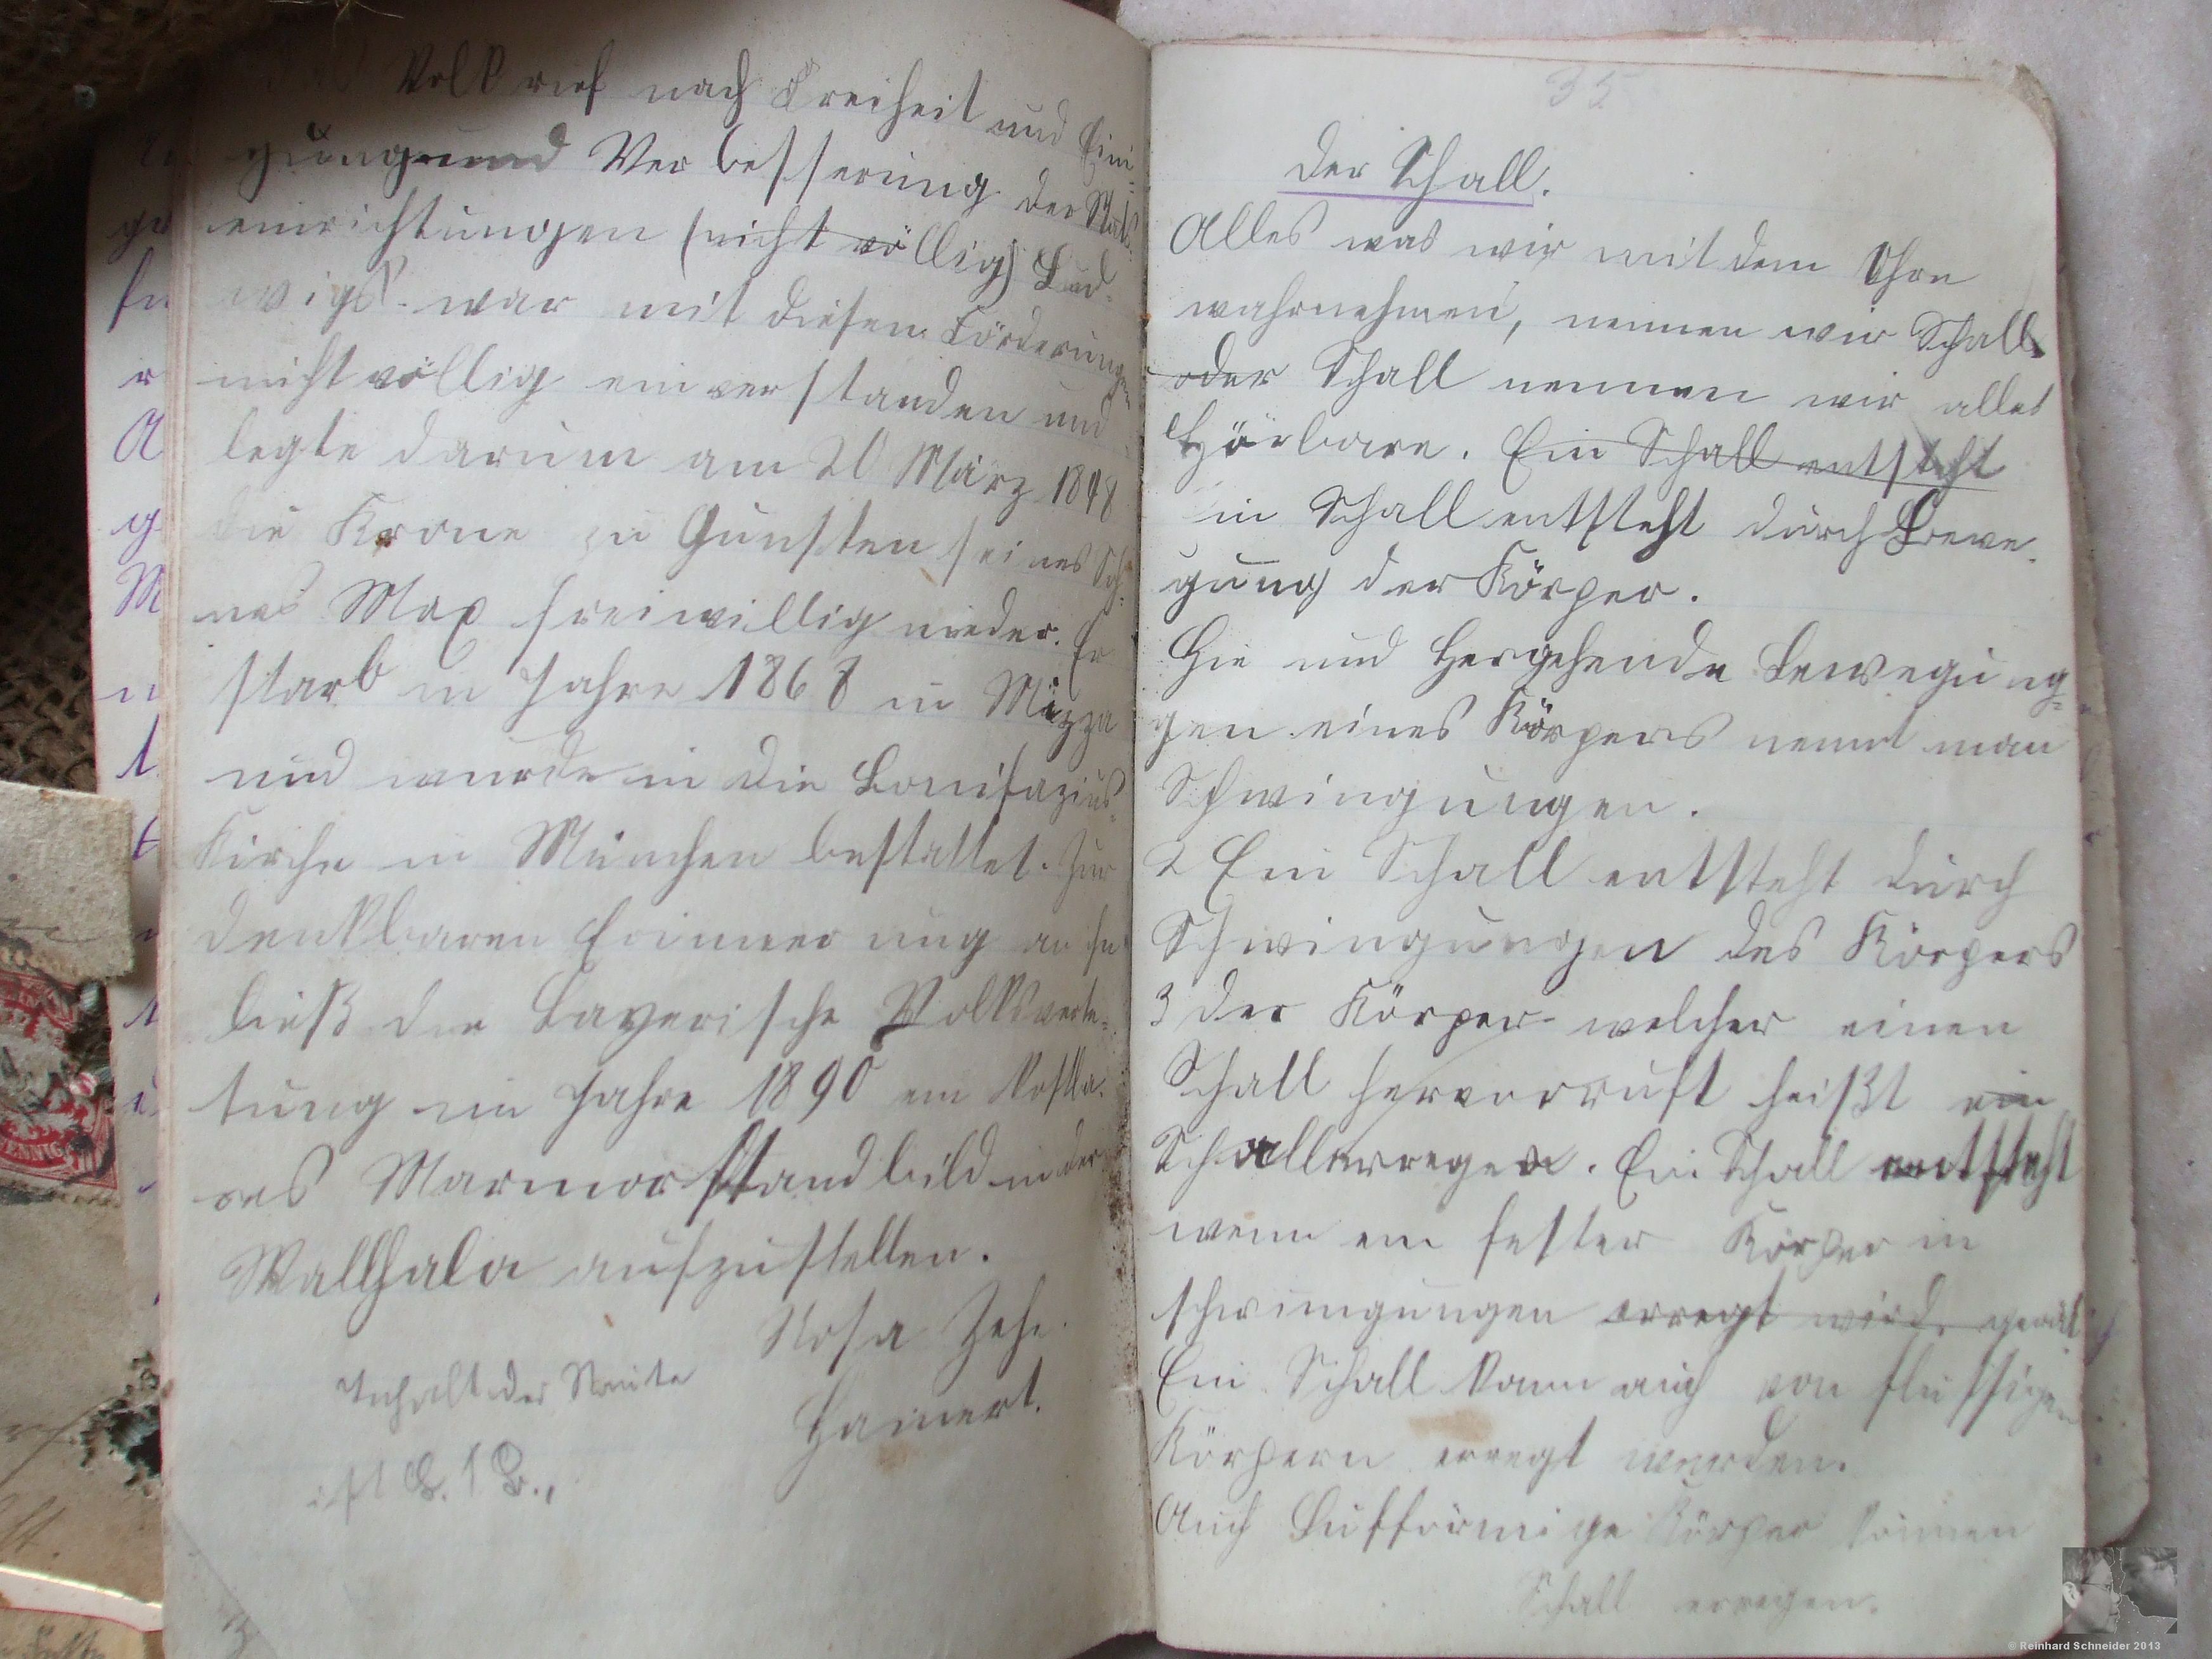 Volk rief nach Freiheit und Eini-
gung und Verbesserung der Stats
einrichtungen (nicht völlig) Lud-
wig I. war mit diesen Förderungen
nicht völlig einverstanden und
legte darum am 20 März 1848
die Krone zu Gunsten seines Soh-
nes Max freiwillig nieder. Er
starb im Jahre 1868 in Nizza
und wurde in die Bonifazius-
Kirche in München bestattet. Zur
denkbaren Erinnerung an ihn
ließ die Bayerische Volksverte-
tung im Jahre 1890 ein
res Marmorstandbild in der
Wallhala aufzustellen.
Rosa Zehe.
Inhalt der Note
Hainert.
ist
35
Der Schall.
Alles was wir mit dem Ohre
wahrnehmen, nennen wir Schall
oder Schall nennen wir alles
Hörbare. Ein Schall entsteht
in Schall entsteht durch Bewe-
gung der Körper.
Hie und Hergehende Bewegung-
gen eines Körpers nennt man
Schwingungen.
2 Ein Schall entsteht durch
Schwingungen des Körpers
3 Der Körper welcher einen
Schall hervorruft heißt ein
Schallerreger. Ein Schall entsteht
wenn ein fester Körper in
schwingungen erregt wird. gerät
Ein Schall kann auch von flüssigen
Körpern erregt werden.
Auch Luftförmige Körper können
Schall erregen.
PFENNIG
© Reinhard Schneider 2013